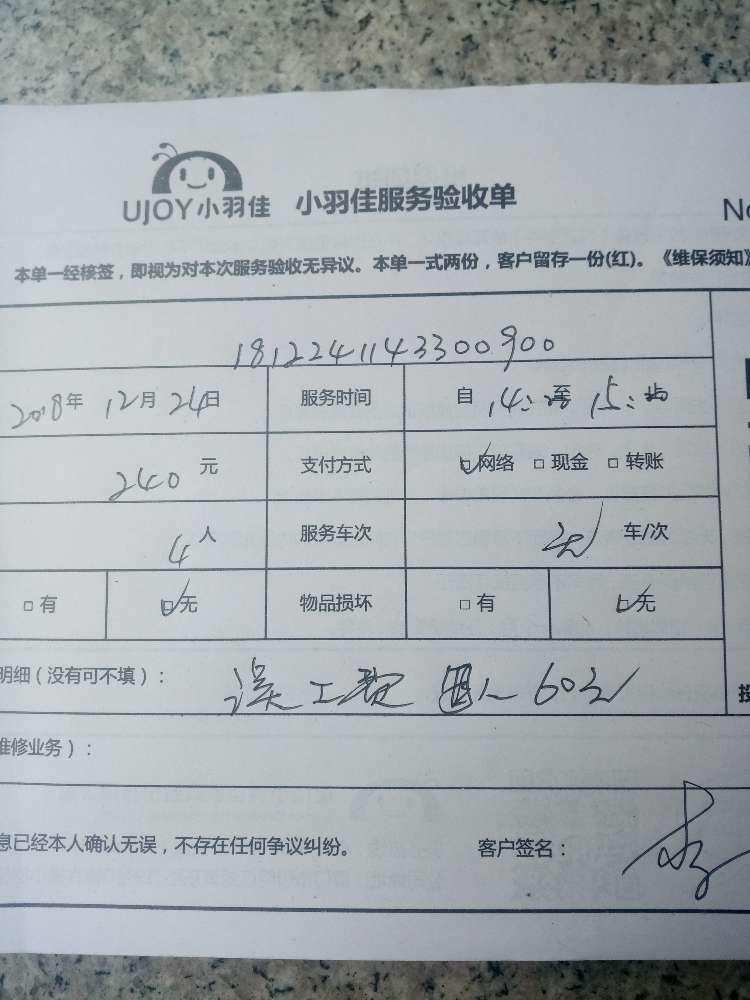 UJOY小羽佳 小羽佳服务验收单
No
本单一经核签，即视为对本次服务验收无异议。本单一式两份，客户留存一份(红)。《维保须知》
1812241143300900
2018年 12月 24日 服务时间 自 14: 至 15:
240 元 支付方式 网络 现金 转账
4 人 服务车次 车/次
有 无 物品损坏 有 无
明细（没有可不填）： 误工费 四人 60元
维修业务）：
息已经本人确认无误，不存在任何争议纠纷。 客户签名：